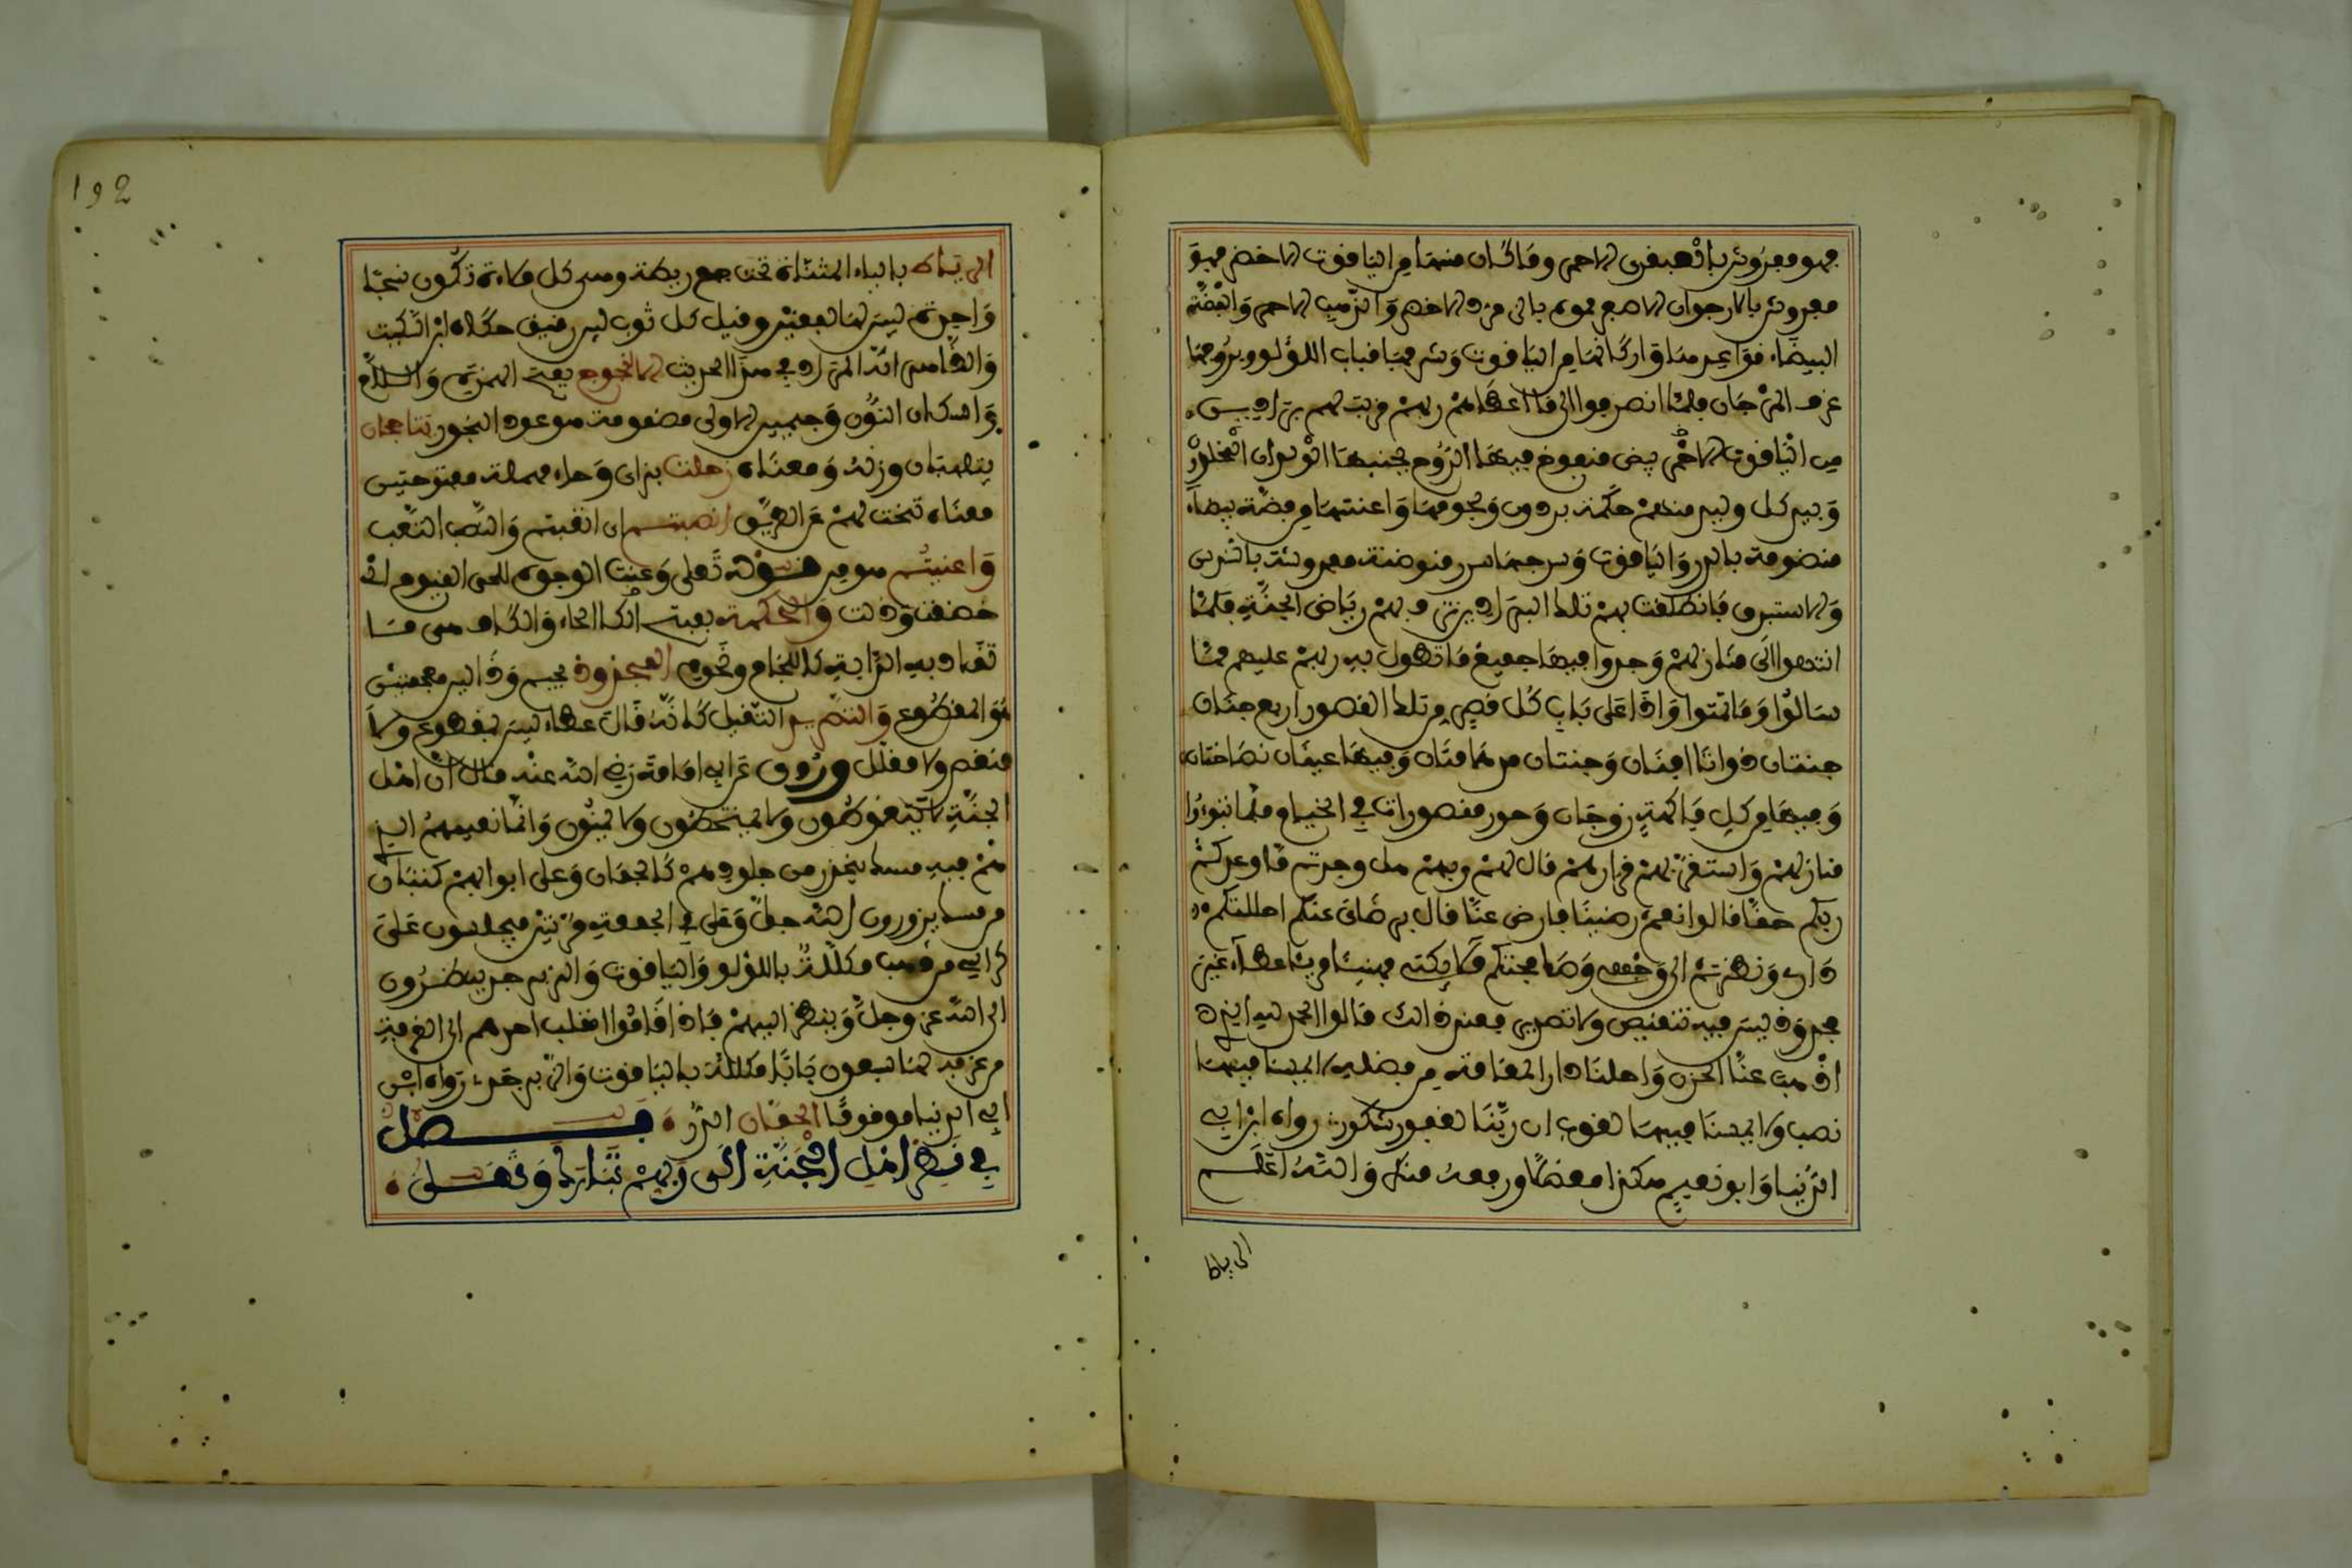 فهو مفروش بالعبقري الاحمر وما كان منها من الياقوت الاخضر فهو
مفروش بالارجوان الاصفر مموه بالزمرد الاخضر والذهب الاحمر والفضة
البيضاء قواعدها واركانها من الياقوت وشرفها قباب اللؤلؤ وبروجها
غرف المرجان فلما انصرفوا الى ما اعطاهم ربهم قربت لهم براذين
من الياقوت الاحمر بيض منفوخ فيها الروح بجنبها الولدان المخلدون
وبيد كل وليد منهم حكمة برذون ولجمها واعنتها من فضة بيضاء
منضومة بالدر والياقوت وسرجها سرر موضونة مفروشة بالسندس
والاستبرق فانطلقت بهم تلك البراذين تزف بهم رياض الجنة فلما
انتهوا الى منازلهم وجدوا فيها جميع ما تطول به ربهم عليهم مما
سالوا وما تمنوا واذا على باب كل قصر من تلك القصور اربع جنان
جنتان ذواتا افنان وجنتان مدهامتان وفيهما عينان نضاختان
وفيهما من كل فاكهة زوجان وحور مقصورات في الخيام فلما تبوءوا
منازلهم واستقر بهم قرارهم قال لهم ربهم هل وجدتم ما وعدكم
ربكم حقا قالوا نعم رضينا فارض عنا قال برضاي عنكم احللتكم
داري ونظرتم الى وجهي وصافحتكم ملائكتي فهنيئا هنيئا عطاء غير
مجذوذ ليس فيه تنغيص ولا تصريد فعند ذالك قالوا الحمد لله الذي
اذهب عنا الحزن واحلنا دار المقامة من فضله لا يمسنا فيها
نصب ولا يمسنا فيها لغوب ان ربنا لغفور شكور رواه ابن ابي
الدنيا وابو نعيم هكذا معضلا ورفعه منكر والله اعلم
الرياط
الرياط بالياء المثناة تحت جمع ريطة وهي كل ملاءة تكون نسجا
واحدة ليس لها لفقين وقيل كل ثوب لين رقيق حكاه ابن السكيت
والظاهر انه المراد في هذا الحديث الالنجوج بفتح الهمزة واللام
واسكان النون وجيمين الاولى مضمومة هو عود البخور تتاجان
يتلهبان وزنه ومعناه زحلت بزاي وحاء مهملة مفتوحتين
معناه تنحت لهم عن الطريق انصبتم اي اتعبتم والنصب التعب
واعنيتم هو من قوله تعلى وعنت الوجوه للحي القيوم اي
خضعت وذلت والحكمة بفتح الحاء والكاف هي ما
تقاد به الدابة كاللجام ونحوه المجذوذ بجيم وذالين معجمتين
هو المقطوع والتصريد التقليل كانه قال عطاء ليس بمقطوع ولا
منغص ولا مقلل وروي عن ابي امامة رضي الله عنه قال ان اهل
الجنة لا يتغوطون ولا يمتخطون ولا يمنون وانما نعيمهم الذي
هم فيه مسك يتحدر من جلودهم كالجمان وعلى ابوابهم كثبان
من مسك يزورون الله جل وعلى في الجمعة مرتين فيجلسون على
كراسي من ذهب مكللة باللؤلؤ والياقوت والزبرجد ينظرون
الى الله عز وجل وينظر اليهم فاذا قاموا انقلب احدهم الى الغرفة
من غرفه لها سبعون بابا مكللة بالياقوت والزبرجد رواه ابن
ابي الدنيا موقوفا الجمان الدر فصل
في نظر اهل الجنة الى ربهم تبارك وتعلى
192